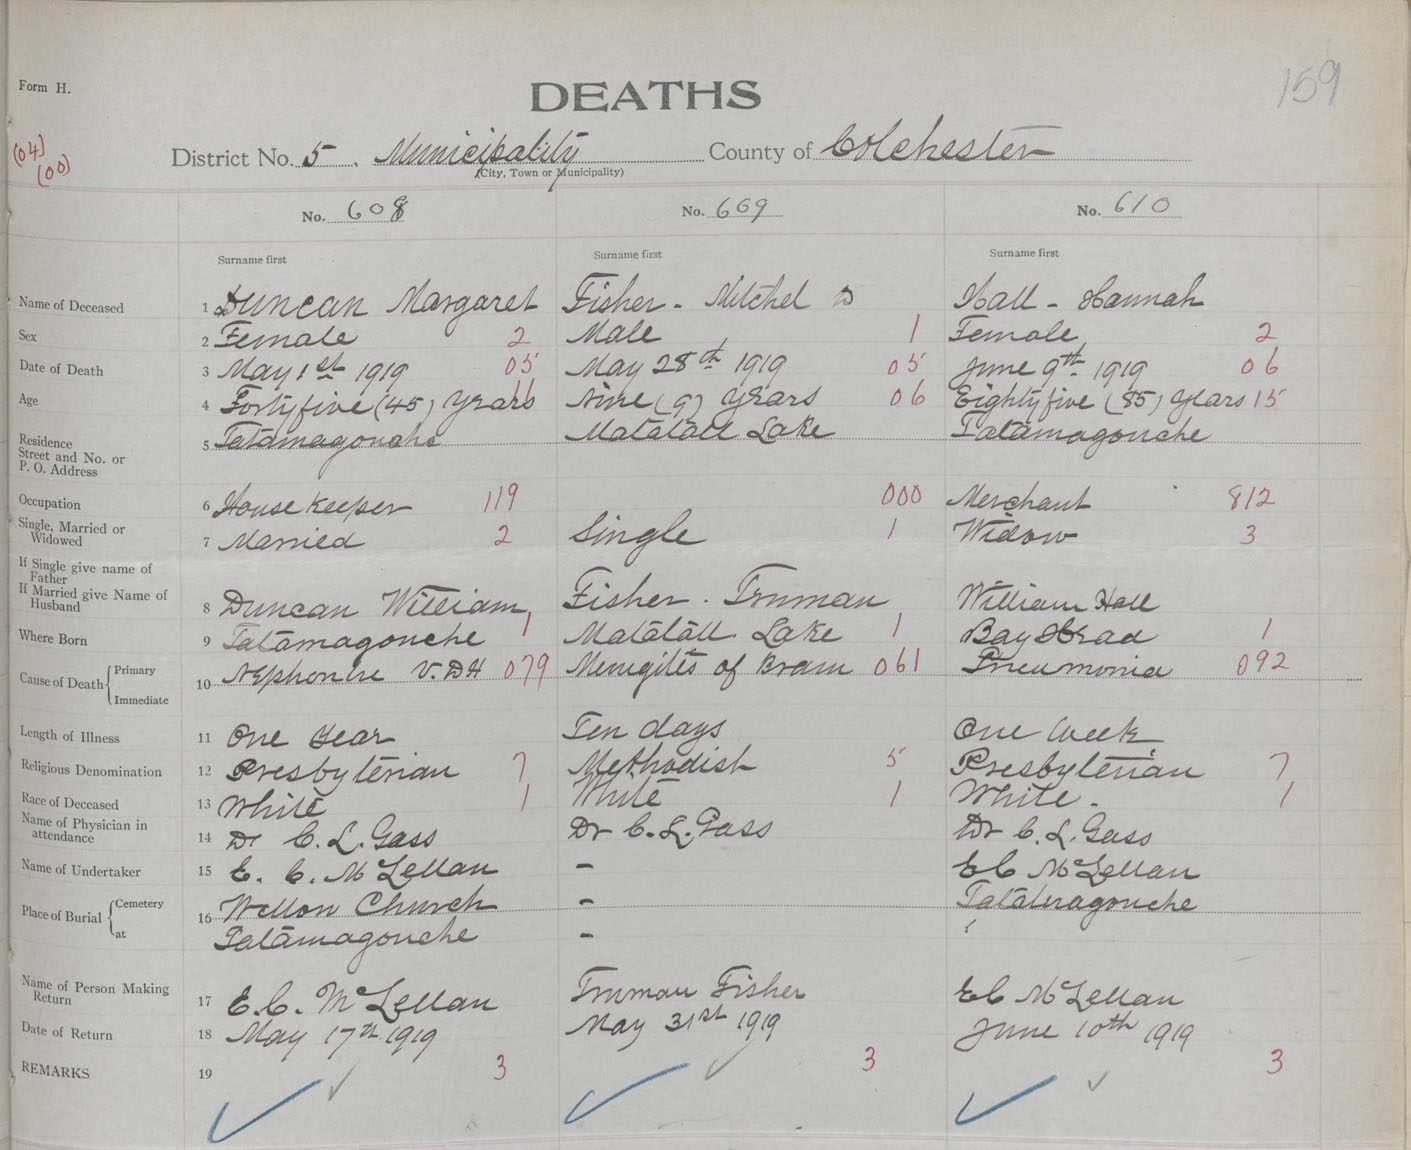 159
Form H.
DEATHS
(04)
(00)
District No. 5. Municipality County of Colchester
(City, Town or Municipality)
No. 608 No. 609 No. 610
Surname first Surname first Surname first
Name of Deceased 1 Duncan Margaret Fisher - Mitchel D Hall - Hannah
Sex 2 Female 2 Male 1 Female 2
Date of Death 3 May 1st 1919 05 May 28th 1919 05 June 9th 1919 06
Age 4 Forty five (45) years 11 Nine (9) years 06 Eighty five (85) years 15
Residence
Street and No. or
P. O. Address
5 Tatamagouche Matatall Lake Tatamagouche
Occupation 6 House keeper 119 000 Merchant 812
Single, Married or
Widowed
7 Married 2 Single 1 Widow 3
If Single give name of
Father
If Married give Name of
Husband
8 Duncan William Fisher - Truman William Hall
Where Born 9 Tatamagouche 1 Matatall Lake 1 Bay Head 1
Cause of Death { Primary
Immediate
10 V.D.H 079 of Brain 061 Pneumonia 092
Length of Illness 11 One Year Ten days One Week
Religious Denomination 12 Presbyterian 7 Methodist 5 Presbyterian 7
Race of Deceased 13 White 1 White 1 White - 1
Name of Physician in
attendance
14 Dr C. L. Gass Dr C. L. Gass Dr C. L. Gass
Name of Undertaker 15 E. C. McLellan - E C McLellan
Place of Burial { Cemetery
at
16 Church - Tatamagouche
Tatamagouche -
Name of Person Making
Return
17 E. C. McLellan Truman Fisher E C McLellan
Date of Return 18 May 17th 1919 May 31st 1919 June 10th 1919
REMARKS 19 3 3 3